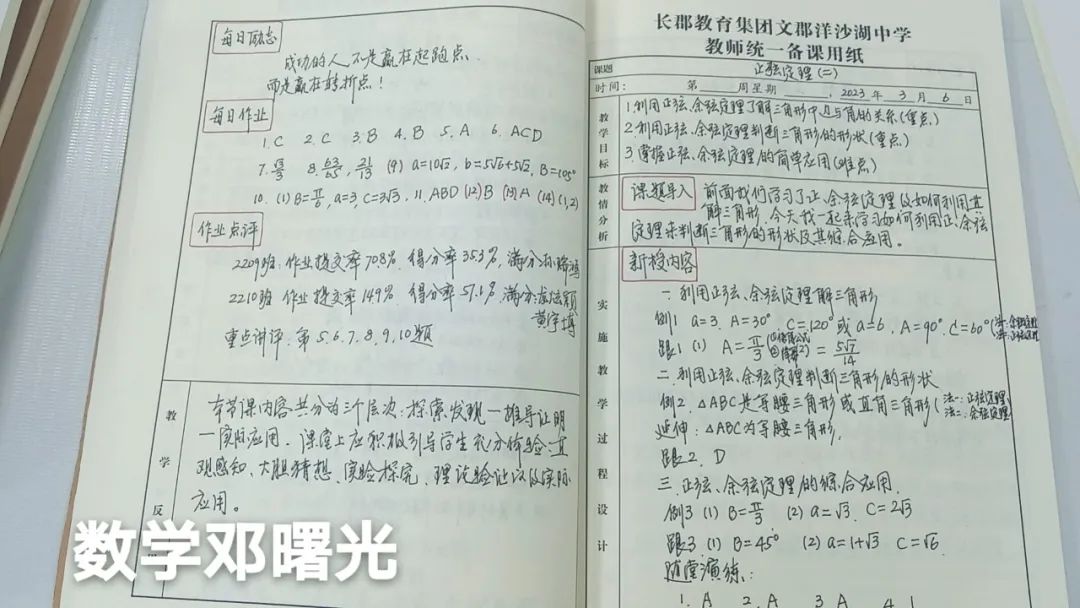 每日励志
成功的人不是赢在起跑点
而是赢在转折点！
每日作业
1.C 2.C 3.B 4.B 5.A 6.ACD
(9) a=10√2, b=5√6+5√2, B=105°
10. (1) B=π/6, a=3, C=3√3, 11. ABD (12) B (13) A (14) (1,2)
作业点评
2209班：作业提交率70.8%. 得分率35.3%, 满分
2210班 作业提交率149%. 得分率57.1%. 满分：
黄宇博
重点讲评：第5.6.7.8.9.10题
教
学
反
本节课内容共分为三个层次：探索发现—推导证明
—实际应用. 课堂上应积极引导学生充分体验：直
观感知、大胆猜想、实验探究、理论验证以及实际
应用。
数学邓曙光
长郡教育集团文郡洋沙湖中学
教师统一备课用纸
课题 正弦定理(二)
时间： 第 周星期 , 2023年3月6日
教学目标
1.利用正弦、余弦定理了解三角形中边与角的关系(重点)
2.利用正弦、余弦定理判断三角形的形状(重点)
3.掌握正弦、余弦定理的简单应用(难点)
教情分析
课题导入 前面我们学习了正、余弦定理及如何利用其
解三角形. 今天我一起来学习如何利用正、余弦
定理来判断三角形的形状及其综合应用。
新授内容
实施教学过程设计
一. 利用正弦、余弦定理解三角形
例1 a=3. A=30° C=120° 或 a=6. A=90°. C=60° (法一：余弦定理
法二：正弦定理)
跟1 (1) A=π/3 = 5√7/14
二. 利用正弦、余弦定理判断三角形的形状
例2. △ABC是等腰三角形或直角三角形(法一：正弦定理
法二：余弦定理)
延伸：△ABC为等腰三角形.
跟2. D
三. 正弦、余弦定理的综合应用.
例3 (1) B=π/3 (2) a=√3. C=2√3
跟3. (1) B=45° (2) a=1+√3 C=√6.
随堂演练：
1. A 2. A 3. A 4. 1